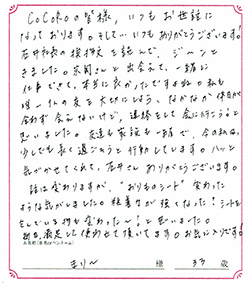 CoCoRoの皆様，いつもお世話に
なっております。そして…いつもありがとうございます。
石井社長の挨拶文を読んで，ジーンと
きました。お関さんと出会えて，一緒に
仕事できて，本当に良かったですよね。私も
唯一人の友を大切にしよう，なかなか休日が
合わず会えないけど，連絡をして会に行こう！と
思いました。友達も家族も一緒で，今の私は，
少しでも長く過ごそうと行動しています。ハッと
気がつかせてくれて，石井さんありがとうございます。
話は変わりますが，"おりものシート"変わった
ような気がしました。粘着力が強くなった！シートを
はがしている時も変わった〜！と思いました。
毎日，満足して使わせて頂いてます。お気に入りです！
お名前(本名orペンネーム)
まりー 様 33歳